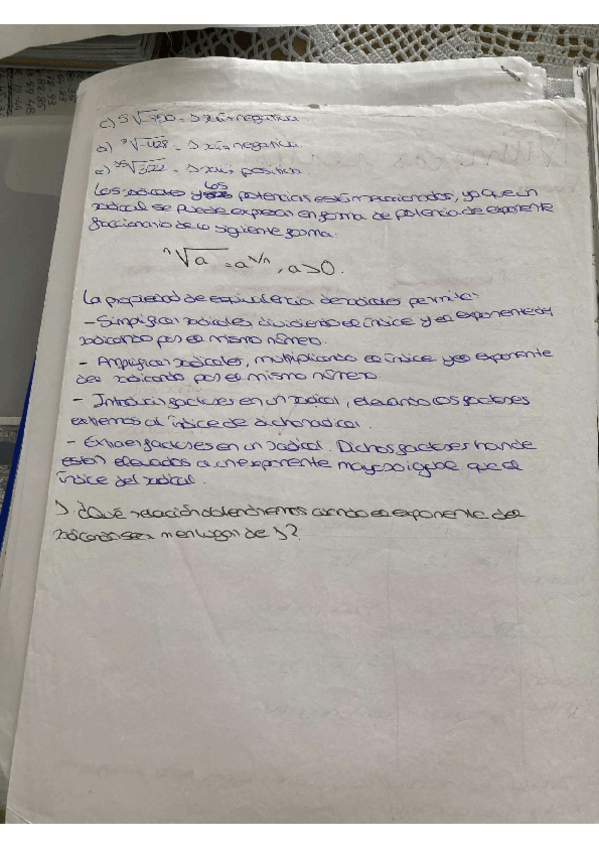 c) ⁵√-710 = 1 raíz negativa
d) ⁹√-428 = 1 raíz negativa
e) √322 = 1 raíz positiva
Los radicales y los potencias están relacionados, ya que un
radical se puede expresar en forma de potencia de exponente
fraccionario de la siguiente forma.
ⁿ√a = a^1/n, a>0.
La propiedad de equivalencia de radicales permite:
- Simplificar radicales dividiendo el índice y el exponente del
radicando por el mismo número.
- Amplificar radicales, multiplicando el índice y el exponente
del radicando por el mismo número.
- Introducir factores en un radical, elevando los factores
externos al índice de dicho radical.
- Extraer factores en un radical. Dichos factores han de
estar elevados a un exponente mayor o igual que el
índice del radical.
1 ¿Qué relación obtendremos cuando el exponente del
radicando sea m en lugar de 1?